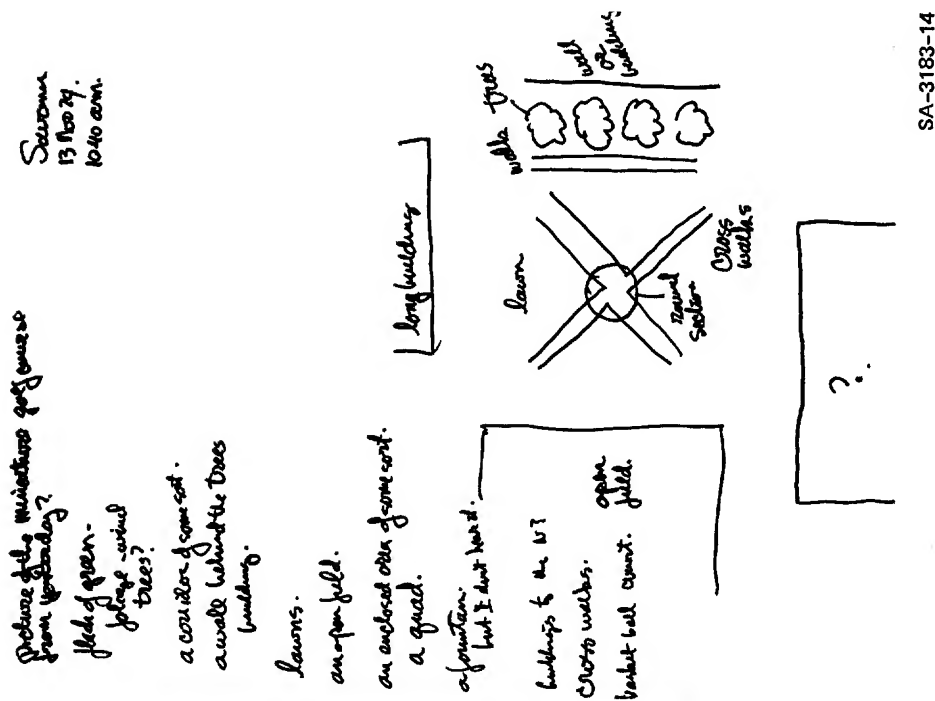 Savonn
13 Nov 79.
1040 am.
picture of the miniature golf course
from yesterday?
fleck of green-
foliage-wind
trees?
a corridor of some sort.
a walk behind the trees
building.
lawns.
an open field.
an enclosed area of some sort.
a quad.
a fountain.
but I dont hear it.
buildings to the N?
cross walks.
basket ball court.
open
field.
long building
lawn
round
section
Cross
walks
walk
trees
wall
or
building
?.
SA-3183-14